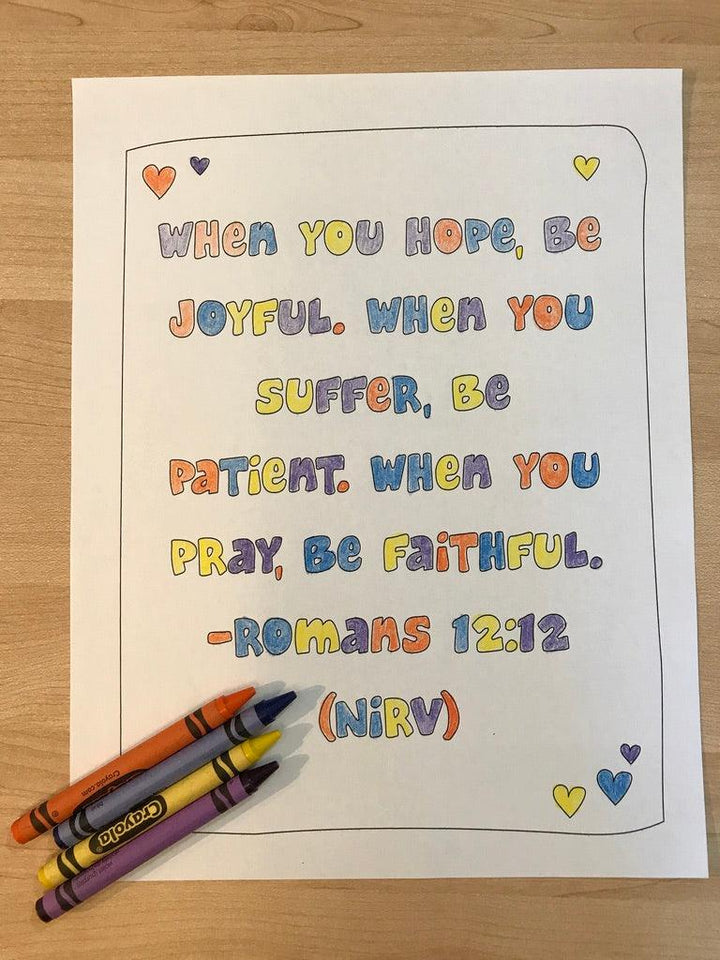 WHen YOU HOPe, Be
JOYFUL. WHen YOU
SUFFeR, Be
PaTienT. WHen YOU
PRaY, Be FaiTHFUL.
-ROmans 12:12
(NiRV)
Crayola.com
Crayola